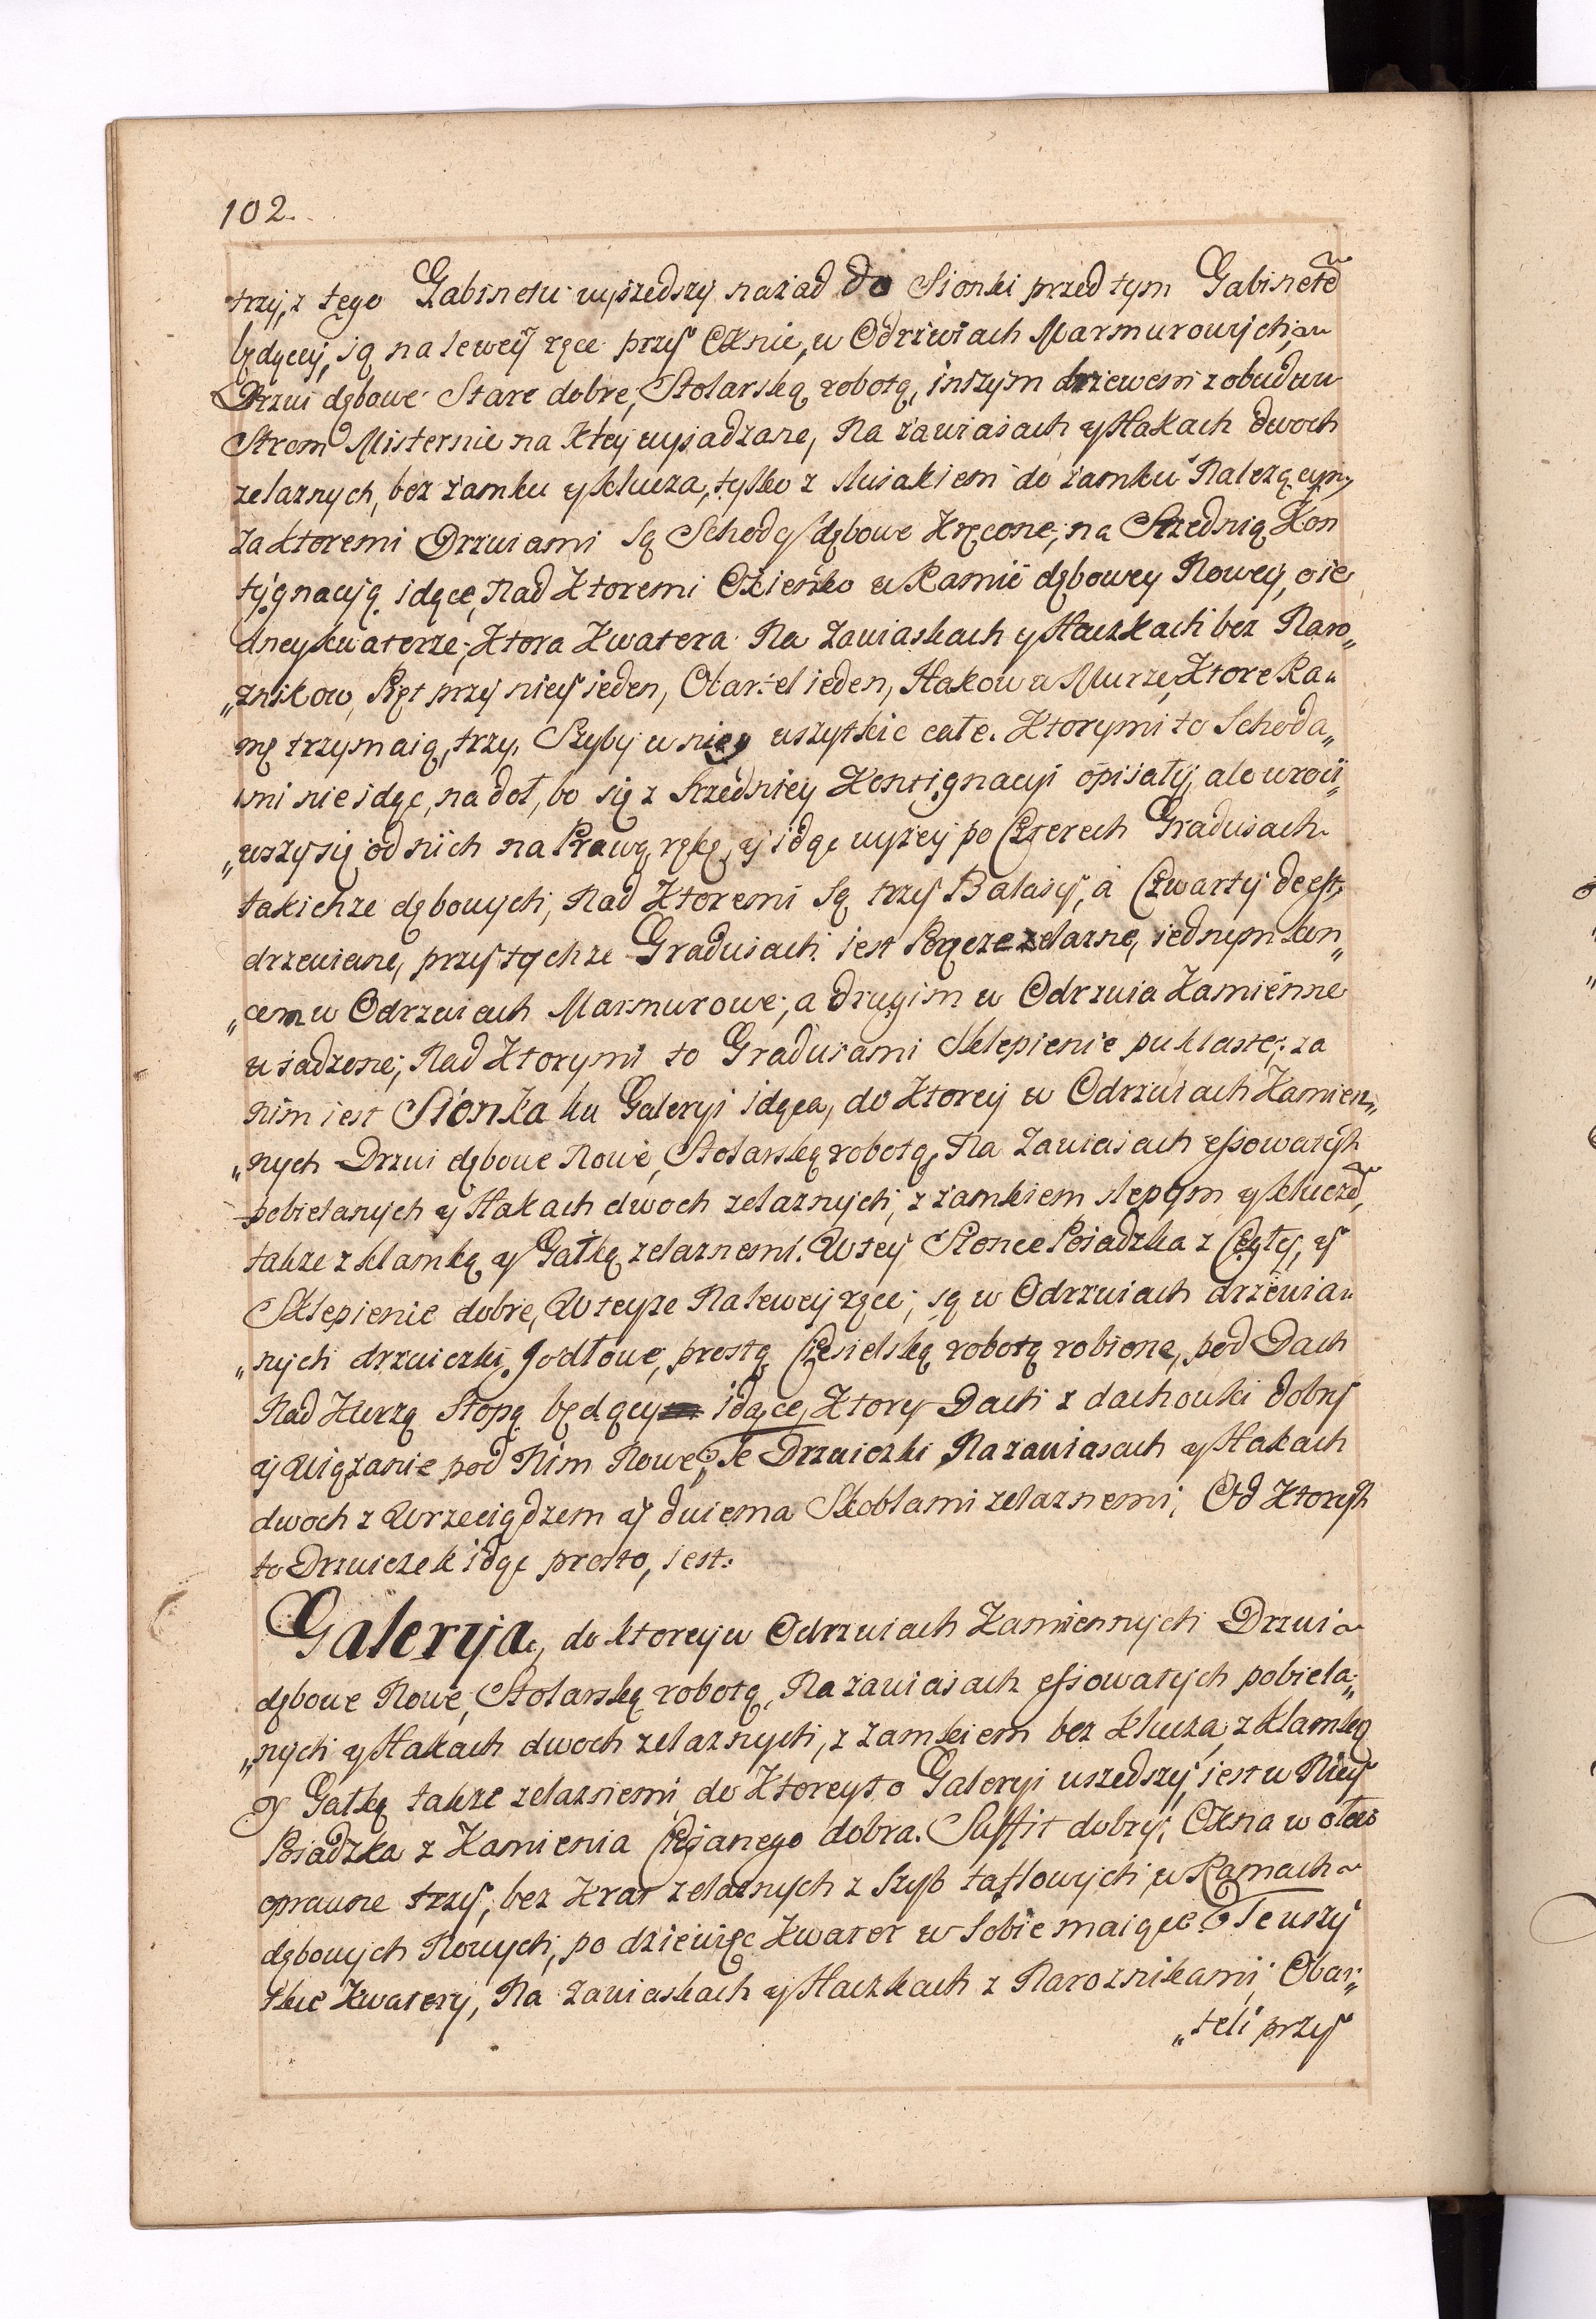 102.
trzy, z tego Gabinetu wyszedszy nazad do Sionki przed tym Gabinetẽ
będący, są na lewey ręce przy Oknie, w Odrzwiach Marmurowych,
Drzwi dębowe Stare dobre, Stolarską robotą, inszym drzewem z obudwu
Stron Misternie na ktey wysadzane, Na zawiasach y Hakach dwoch
zelaznych, bez zamku y klucza, tylko z slusakiem do zamku Nalezącym,
za ktoremi Drzwiami są Schody dębowe Kręcone, na Srzednią Kon
tygnacyą idące, Nad Ktoremi Okienko w Ramie dębowey Nowey, o ie
dney kwaterze, Ktora Kwatera Na Zawiaskach y Haczkach bez Naro„
„znikow, Pręt przy niey ieden, Obartel ieden, Hakow w Murze, Ktore Ra„
mę trzymaią, trzy, Szyby w niey wszytkie całe. Ktorymi to Schoda„
mi nie idąc, na doł, bo się z Srzedniey Kontignacyi opisały, ale wroci„
„wszy się od nich na Prawą rękę, y idąc wyżey po Czterech Gradusach
takichze dębowych, Nad Ktoremi są trzy Balasy, a Czwarty deest,
drzewiane, przy tychze Gradusach iest Poręcze zelazne, iednym kon„
„cem w Odrzwiach Marmurowe, a drugim w Odrzwia Kamienne
wsadzone, Nad Ktorymi to Gradusami Sklepienie puklaste, za
nim iest Sionka ku Galeryi idąca, do Ktorey w Odrzwiach Kamien„
„nych Drzwi dębowe Nowe, Stolarską robotą, Na Zawiasach essowatych
pobielanych y Hakach dwoch zelaznych, z zamkiem slepym y kluczẽ,
takze z klamką y Gałką zelaznemi. W tey Sionce Posadzka z Cegły, y
Sklepienie dobre, W teyze Na lewey ręce, są w Odrzwiach drzewia„
„nych drzwiczki Jodłowe, prostą Ciesielską robotą robione, pod Dach
Nad Kurzą Stopą będący idące, Ktory Dach z dachowki dobry
y Wiązanie pod Nim Nowe, Te Drzwiczki Na zawiasach y Hakach
dwoch z Wrzeciądzem y dwiema Skoblami zelaznemi, Od Ktorych
to Drzwiczek idąc prosto, iest.
Galeryja, do ktorey w Odrzwiach Kamiennych Drzwi
dębowe Nowe, Stolarską robotą, Na zawiasach essowatych pobiela„
„nych y Hakach dwoch zelaznych, z zamkiem bez klucza, z Klamką
y Gałką takze zelaznemi, do Ktorey to Galeryi wszedszy, iest w Niey
Posadzka z Kamienia Ciosanego dobra. Suffit dobry, Okna w ołow
oprawne trzy, bez Krat zelaznych z Szyb taflowych, w Ramach
dębowych Nowych, po dziewięc Kwater w sobie maiące, Te wszy
tkie Kwatery, Na Zawiaskach y Haczkach z Naroznikami, Obar„
„teli przy